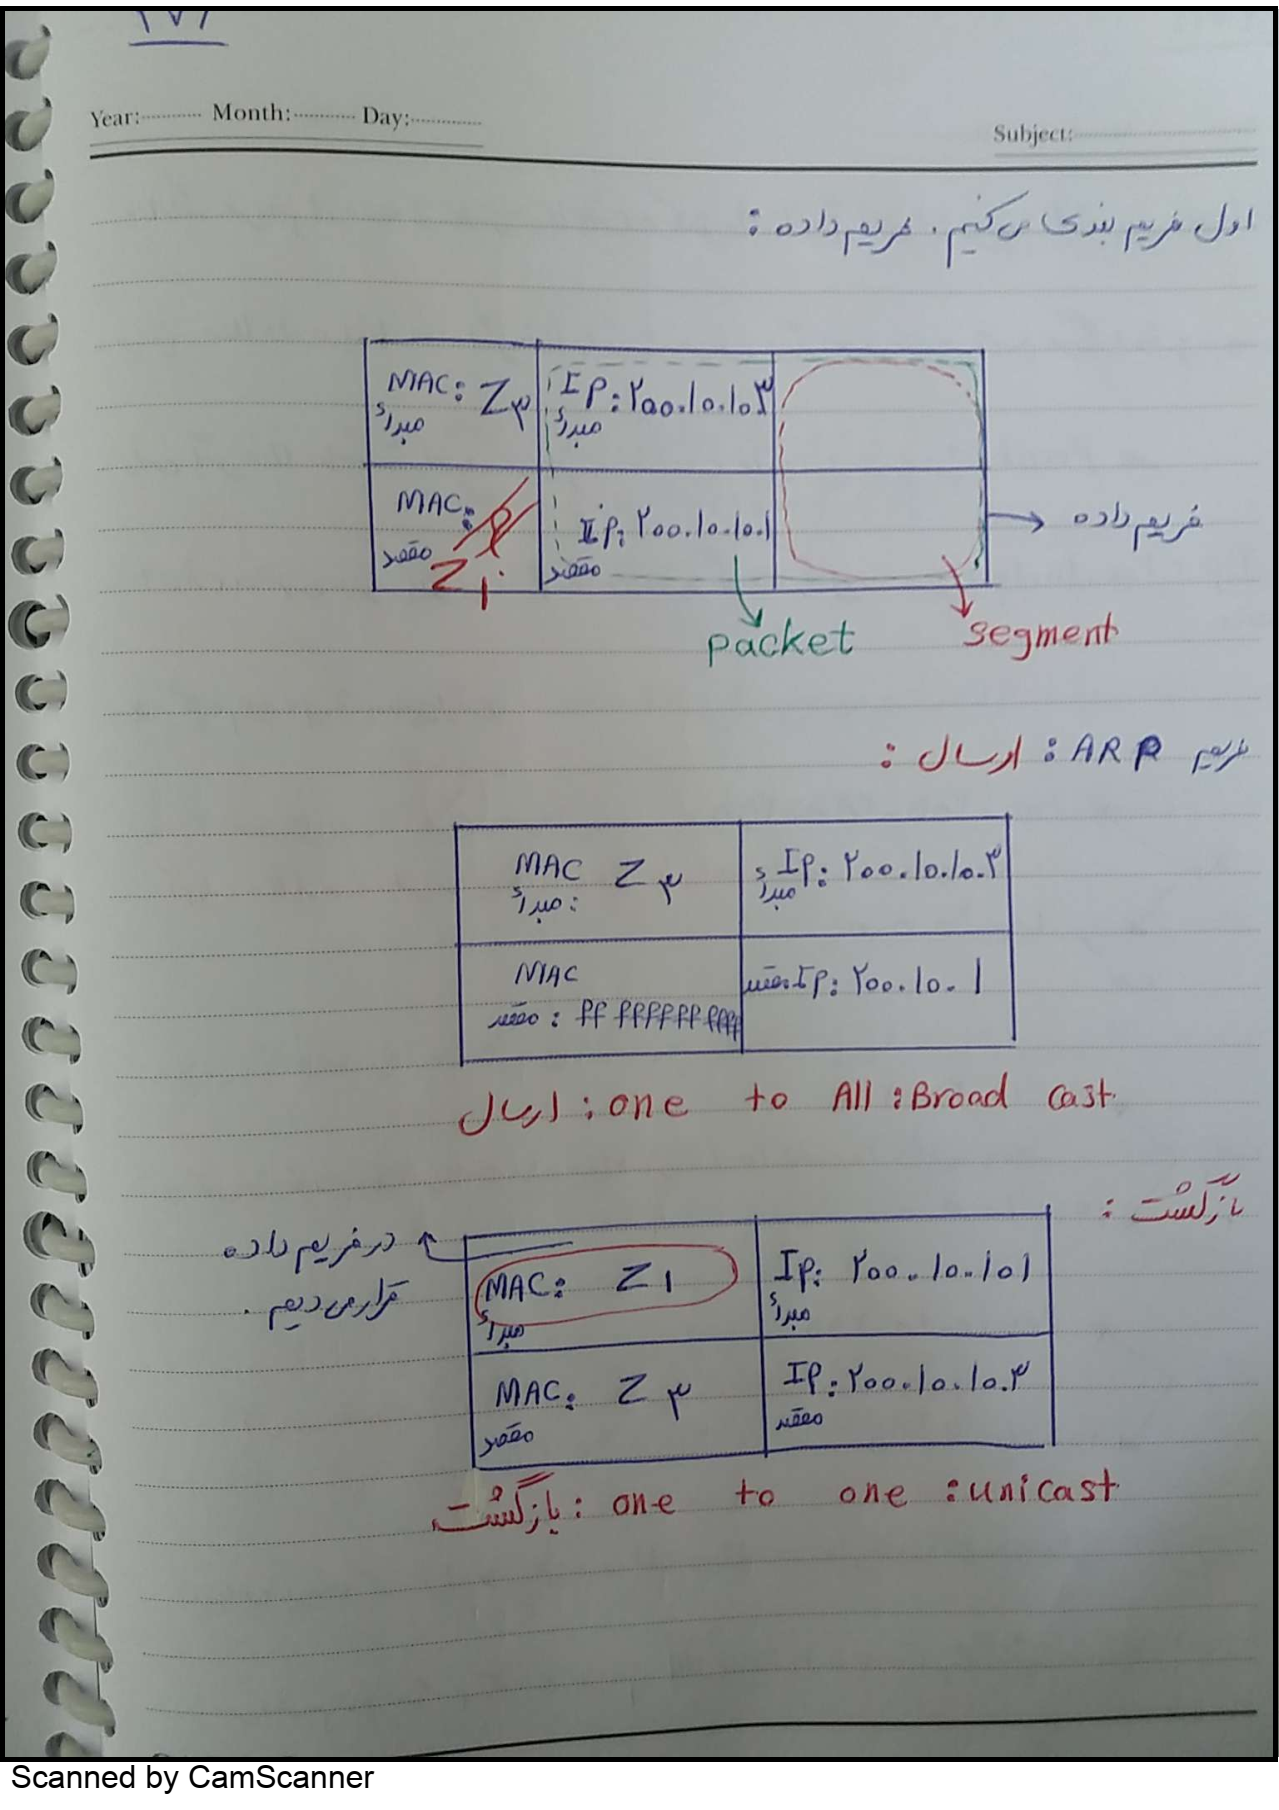 ۲۷۶
Year: Month: Day:
Subject:
اول فریم بندی می‌کنیم. فریم داده:
MAC: Z۳
مبدأ
IP: ۲۰۰.۱۰.۱۰.۳
مبدأ
MAC:
مقصد
Z۱
IP: ۲۰۰.۱۰.۱۰.۱
مقصد
فریم داده
packet
segment
فریم ARP: ارسال:
MAC Z۳
مبدأ:
IP: ۲۰۰.۱۰.۱۰.۳
مبدأ
MAC
مقصد: ff ffffffffff
مقصد IP: ۲۰۰.۱۰.۱
ارسال: one to All: Broad cast
بازگشت:
در فریم داده
قرار می دیم.
MAC: Z۱
مبدأ
IP: ۲۰۰.۱۰.۱۰۱
مبدأ
MAC: Z۳
مقصد
IP: ۲۰۰.۱۰.۱۰.۳
مقصد
بازگشت: one to one: unicast
Scanned by CamScanner